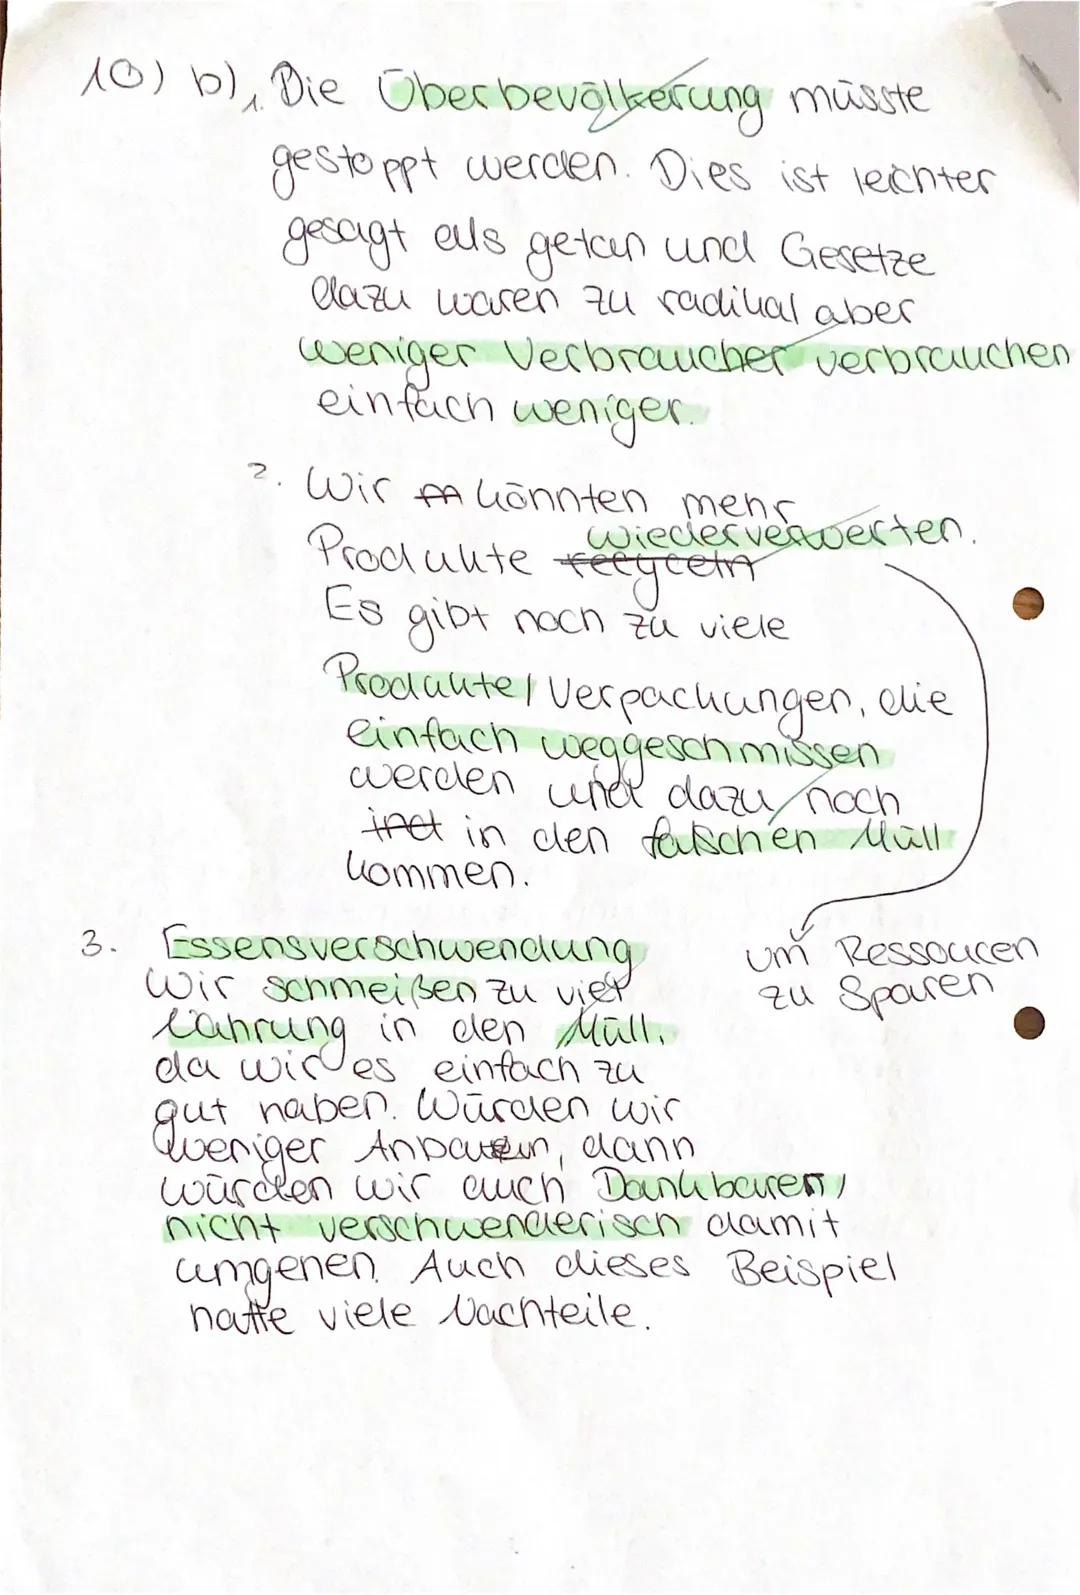 10) b) 1. Die Überbevölkerung müsste
gestoppt werden. Dies ist leichter
gesagt als getan und Gesetze
dazu wären zu radikal aber
weniger Verbraucher verbrauchen
einfach weniger.
2. Wir könnten mehr
wiederverwerten.
Produkte recyceln
Es gibt noch zu viele
Produkte/Verpackungen, die
einfach weggeschmissen
werden und dazu noch
in den falschen Müll
kommen.
um Ressoucen
zu Sparen
3. Essensverschwendung
Wir schmeißen zu viel
Nahrung in den Müll,
da wir es einfach zu
gut haben. Würden wir
weniger Anbauen, dann
würden wir auch Dankbarer,
nicht verschwenderisch damit
umgehen. Auch dieses Beispiel
hätte viele Nachteile.